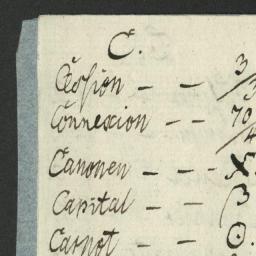 C.
Cession — — 3/3
Connexion — — 70/4
Canonen — — - X.
Capital — — β
Carnot — — ⊙.